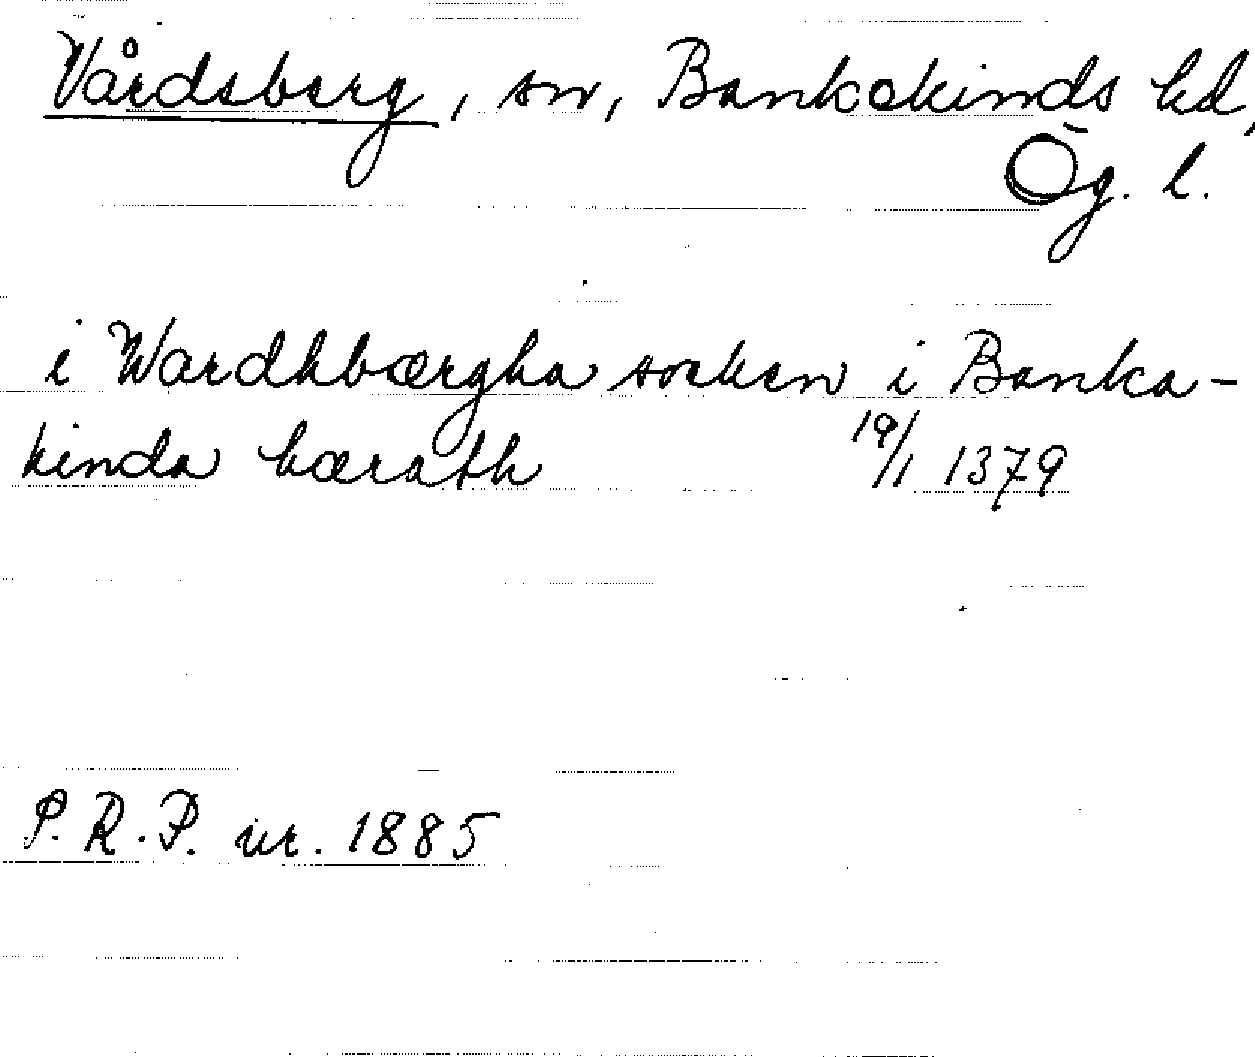 Vårdsberg, sn, Bankekinds hd,
Ög. l.
i Wardhbærgha soken i Banka-
kinda hærath 19/1 1379
P. R. P. nr. 1885